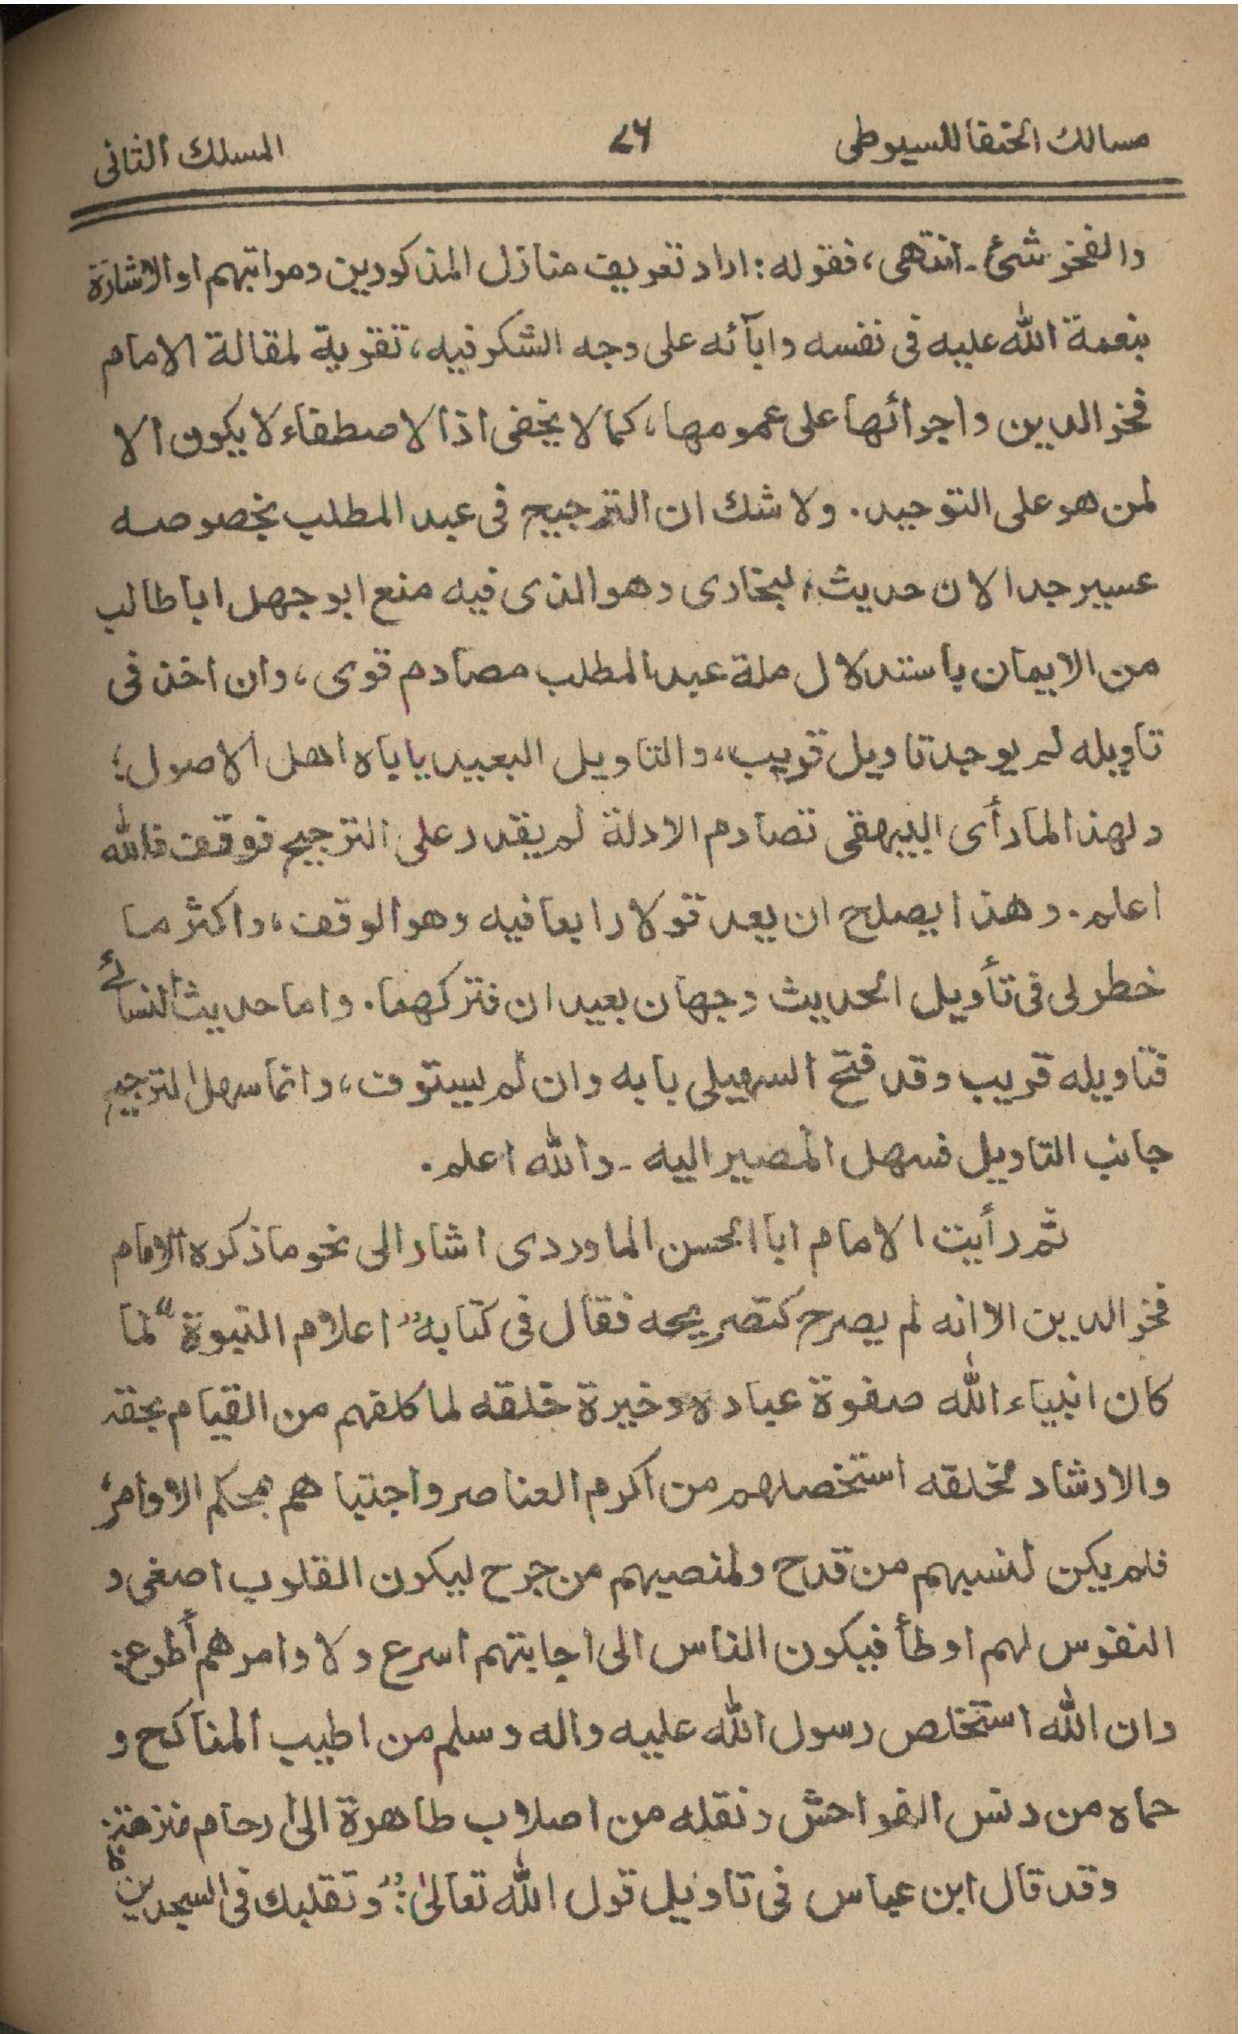 مسالك الحنفا للسيوطى ٤٦ المسلك الثانى
والفخر شئ ـ انتهى، فقوله: اراد تعريف منازل المذكورين ومراتبهم او الاشارة
بنعمة الله عليه فى نفسه وابآئه على وجه الشكر فيه، تقوية لمقالة الامام
فخر الدين واجرائها على عمومها، كما لا يخفى اذا لاصطفاء لا يكون الا
لمن هو على التوحيد. ولا شك ان الترجيح فى عبد المطلب بخصوصه
عسير جدا لان حديث البخارى وهو الذى فيه منع ابو جهل ابا طالب
من الايمان باستدلال ملة عبد المطلب مصادم قوى، وان اخذ فى
تاويله لم يوجد تاويل قريب، والتاويل البعيد ياباه اهل الاصول؛
ولهذا لما رأى البيهقى تصادم الادلة لم يقدر على الترجيح فوقف فالله
اعلم. وهذا يصلح ان يعد قولا رابعا فيه وهو الوقف، واكثر ما
خطر لى فى تأويل الحديث وجهان بعيدان فتركهما. واما حديث النسائے
فتاويله قريب وقد فتح السهيلى بابه وان لم يستوف، وانما سهل الترجيح
جانب التاويل فسهل المصير اليه ـ والله اعلم.
ثم رأيت الامام ابا الحسن الماوردى اشار الى نحو ما ذكره الامام
فخر الدين الا انه لم يصرح كتصريحه فقال فى كتابه "اعلام النبوة" لما
كان انبياء الله صفوة عباده وخيرة خلقه لما كلفهم من القيام بحقه
والارشاد لخلقه استخصلهم من اكرم العناصر واجتباهم بمحكم الاوامر
فلم يكن لنسبهم من قدح ولمنصبهم من جرح ليكون القلوب اصغى و
النفوس لهم اوطأ فيكون الناس الى اجابتهم اسرع ولاوامرهم أطوع:
وان الله استخلص رسول الله عليه واله وسلم من اطيب المناكح و
حماه من دنس الفواحش ونقله من اصلاب طاهرة الى ارحام منزهة:
وقد قال ابن عباس فى تاويل قول الله تعالىٰ: "وتقلبك فى السجدين